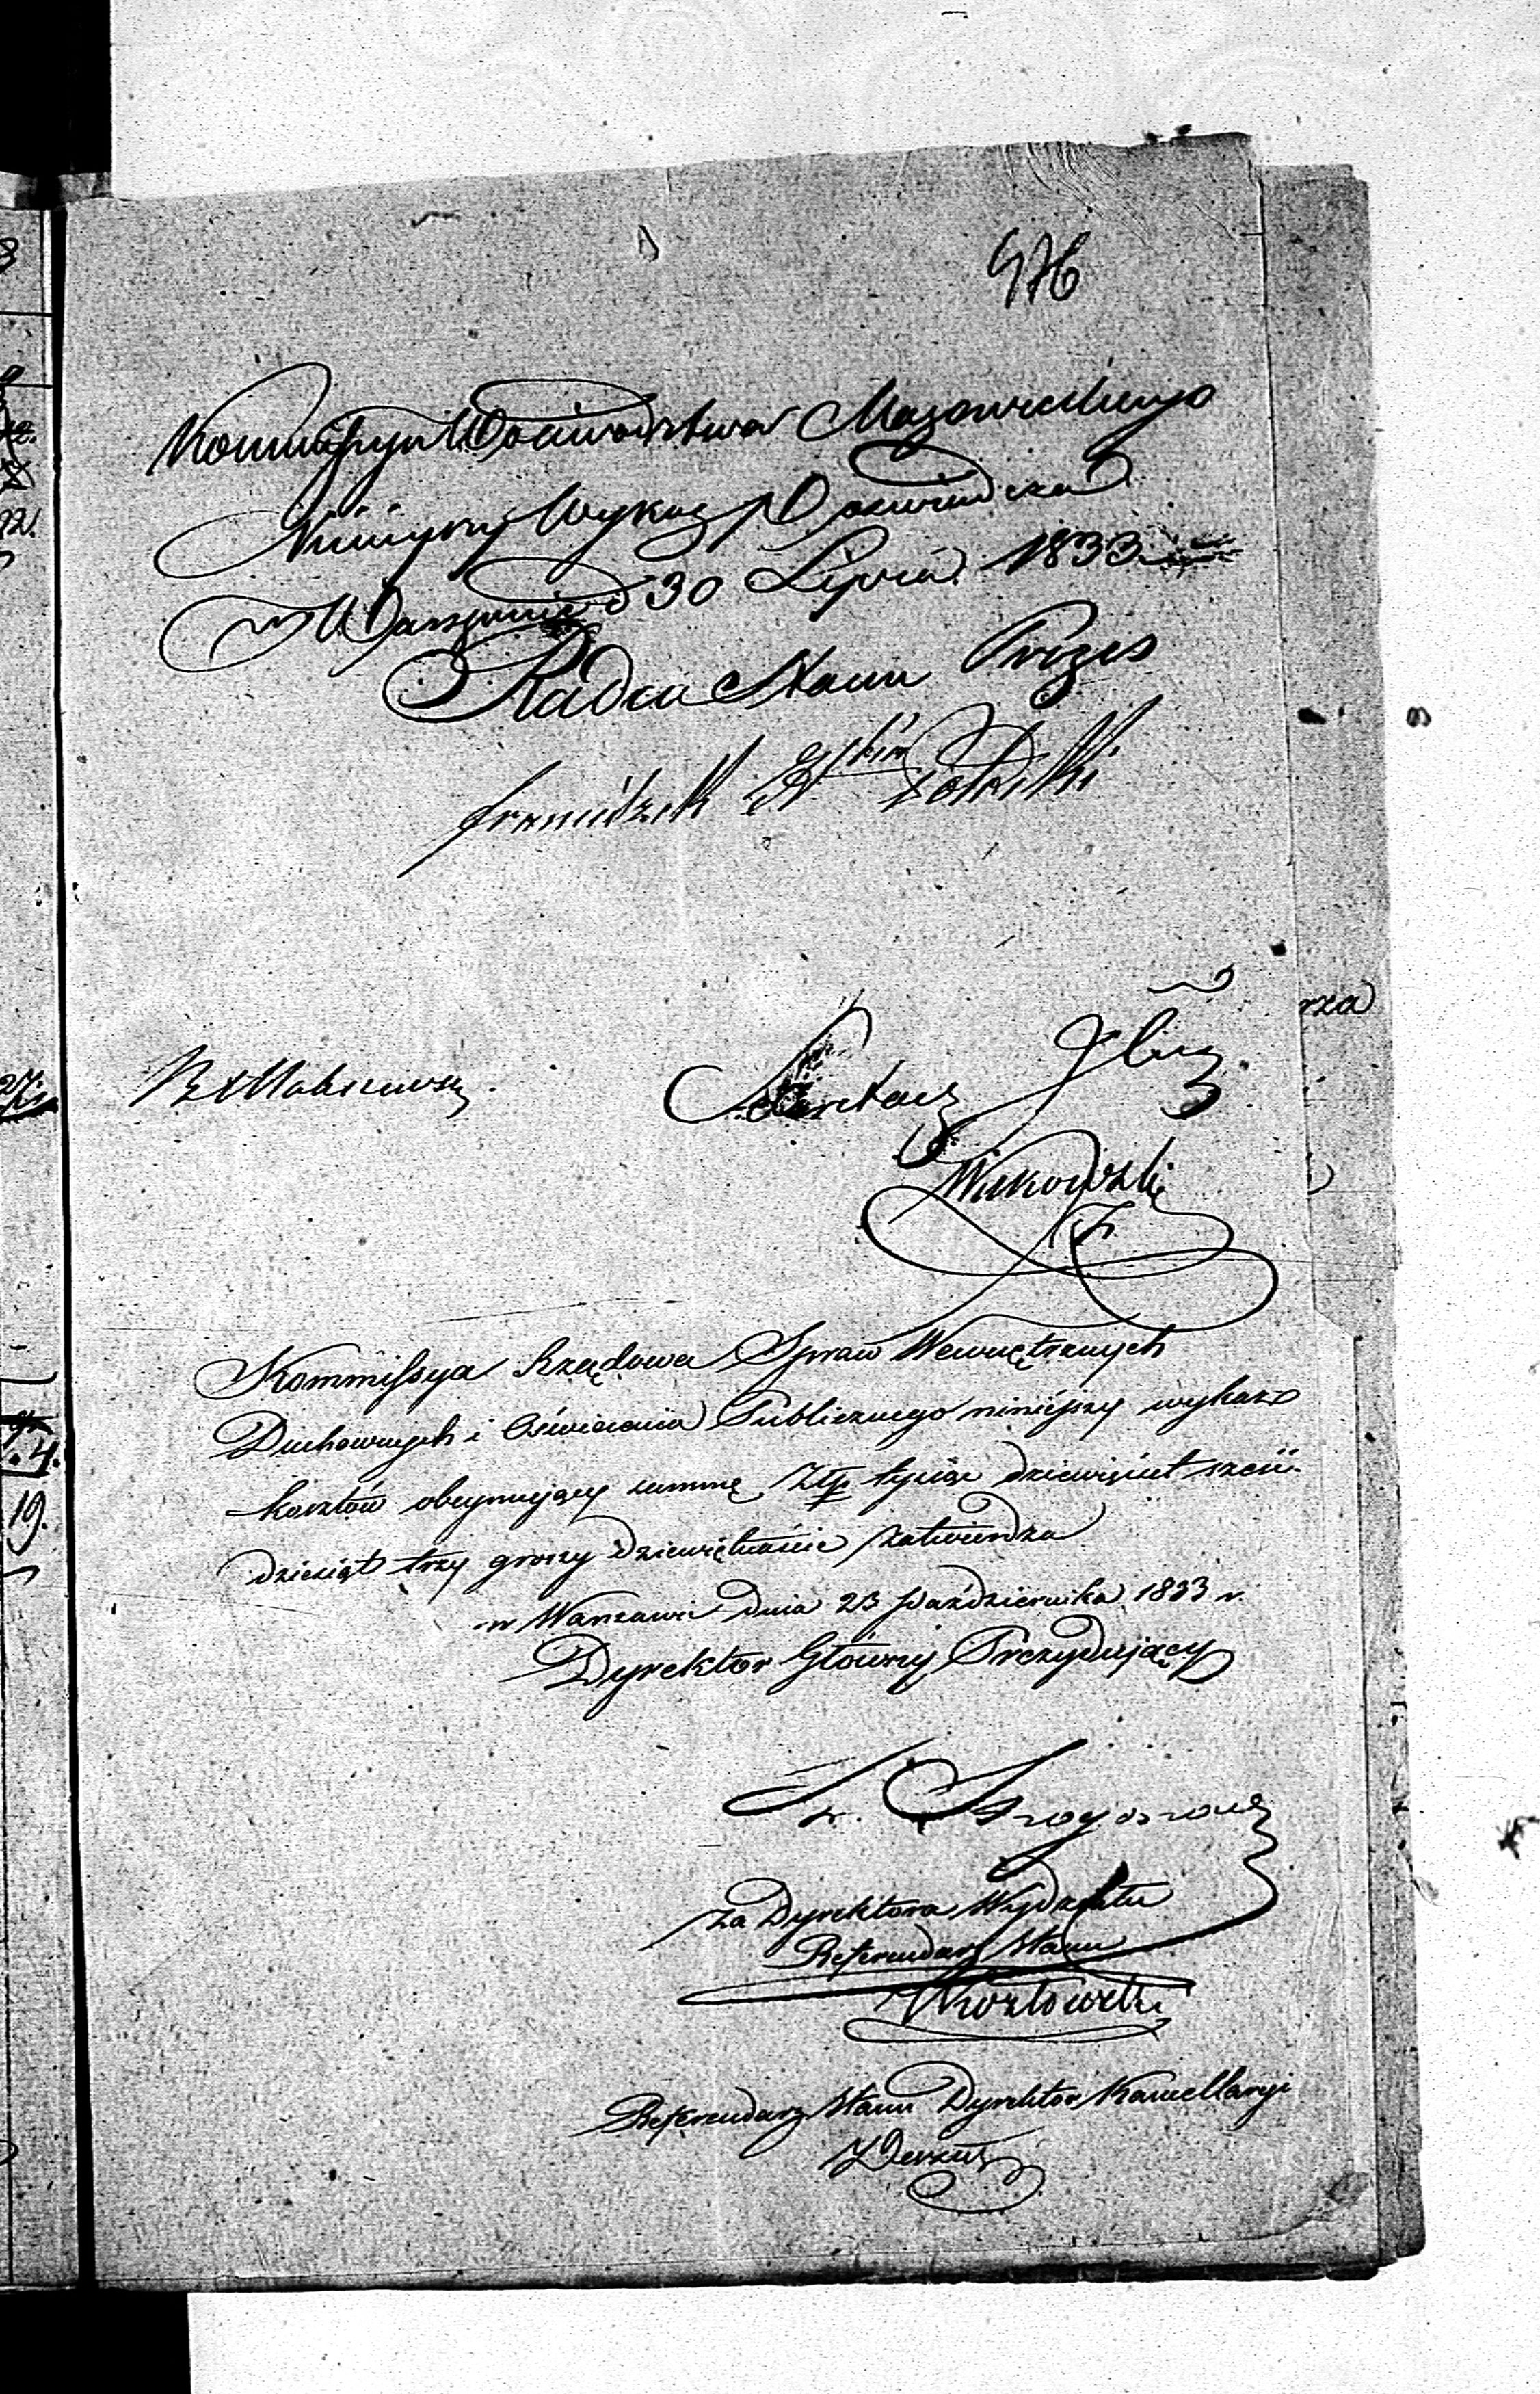 476
Kommissya Woiewodztwa Mazowieckiego
Ninieyszy Wykaz Poświadcza
W Warszawie d 30 Lipca 1833
Radca Stanu Prezes
Franciszek Potocki
Sekretarz Jlny
Wilkowski
Kommissya Rządowa Spraw Wewnętrznych
Duchownych i Oświecenia Publicznego niniejszy wykaz
kosztów obeymujący summę Złp tysiąc dziewięćset sześć-
dziesiąt trzy groszy dziewiętnaście zatwierdza
w Warszawie dnia 23 Października 1833 r.
Dyrektor Główny Prezydujący
Za Dyrektora Wydziału
Referendarz Stanu
Kozłowski
Referendarz Stanu Dyrektor Kancellaryi
rza
27.
4.
19.